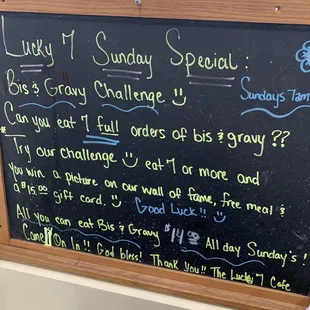 Lucky 7 Sunday Special:
Bis & Gravy Challenge
Sundays 7am
Can you eat 7 full orders of bis & gravy??
* Try our challenge eat 7 or more and
you win a picture on our wall of fame, free meal &
a $15.00 gift card. Good Luck!!
All you can eat Bis & Gravy $14.00 All day Sunday's!
Come On In!! God bless! Thank you!! The Lucky 7 Cafe